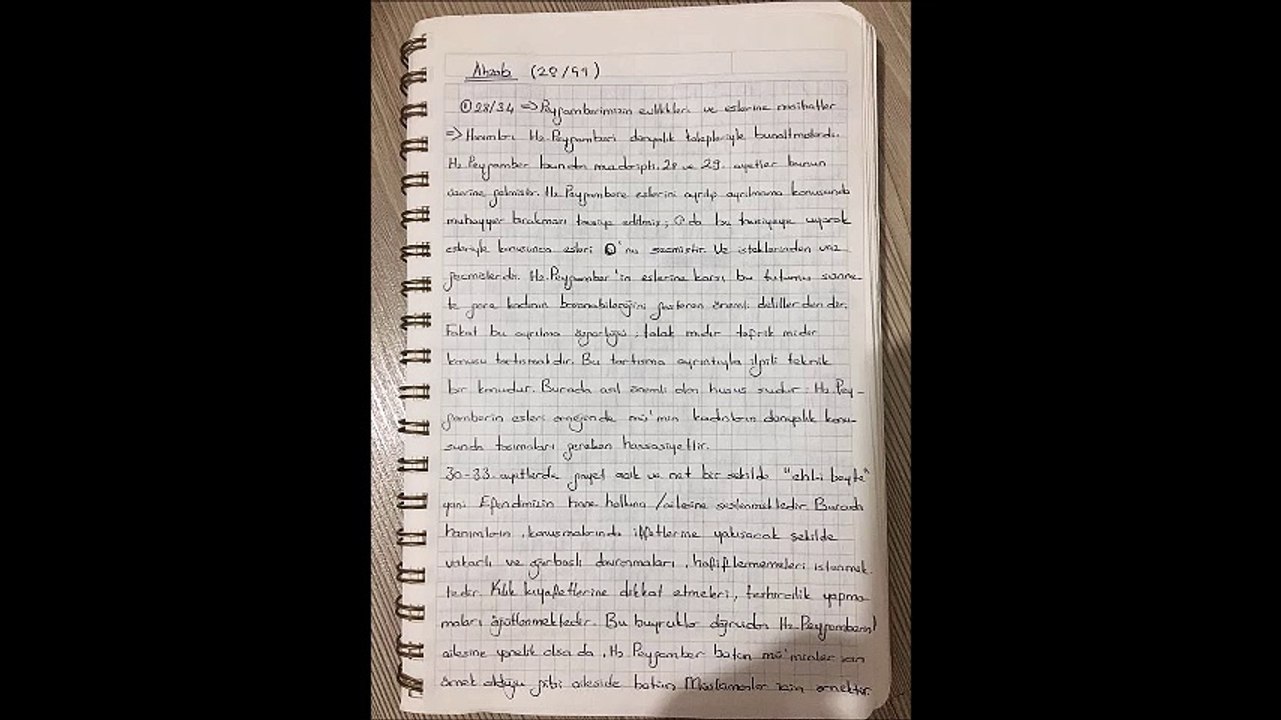 Ahzab (28/49)
① 28/34 => Peygamberimizin evlilikleri ve eslerine nasihatler
=> Hanımları Hz. Peygamberi dünyalık talepleriyle bunaltmışlardı.
Hz Peygamber bundan muzdaripti. 28 ve 29. ayetler bunun
üzerine gelmiştir. Hz Peygambere eslerini ayrılıp ayrılmama konusunda
muhayyer bırakması tavsiye edilmiş; O'da bu tavsiyeye uyarak
esleriyle konusunca esleri O'nu secmistir. Ve isteklerinden vaz
gecmislerdir. Hz. Peygamber'in eslerine karsı bu tutumu sünne-
te göre kadının boşanabileceğini gösteren önemli delillerdendir.
Fakat bu ayrılma özgürlüğü; talak mıdır tefrik midir
konusu tartısmalıdır. Bu tartısma ayrıntıyla ilgili teknik
bir konudur. Burada asıl önemli olan husus sudur: Hz. Pey-
gamberin esleri örneğinde mü'min kadınların dünyalık konu-
sunda tasımaları gereken hassasiyettir.
30-33. ayetlerde gayet acık ve net bir sekilde "ehl-i beyte"
yani Efendimizin hane halkına / ailesine seslenmektedir. Burada
hanımların, konusmalarında iffetlerine yakısacak şekilde
vakarlı ve ağırbaslı davranmaları, hafiflememeleri istenmek-
tedir. Kılık kıyafetlerine dikkat etmeleri, teshircilik yapma-
maları öğütlenmektedir. Bu buyruklar doğrudan Hz. Peygamberin
ailesine yönelik olsa da, Hz Peygamber bütün mü'minler icin
örnek olduğu gibi aileside bütün Müslümanlar icin örnektir.